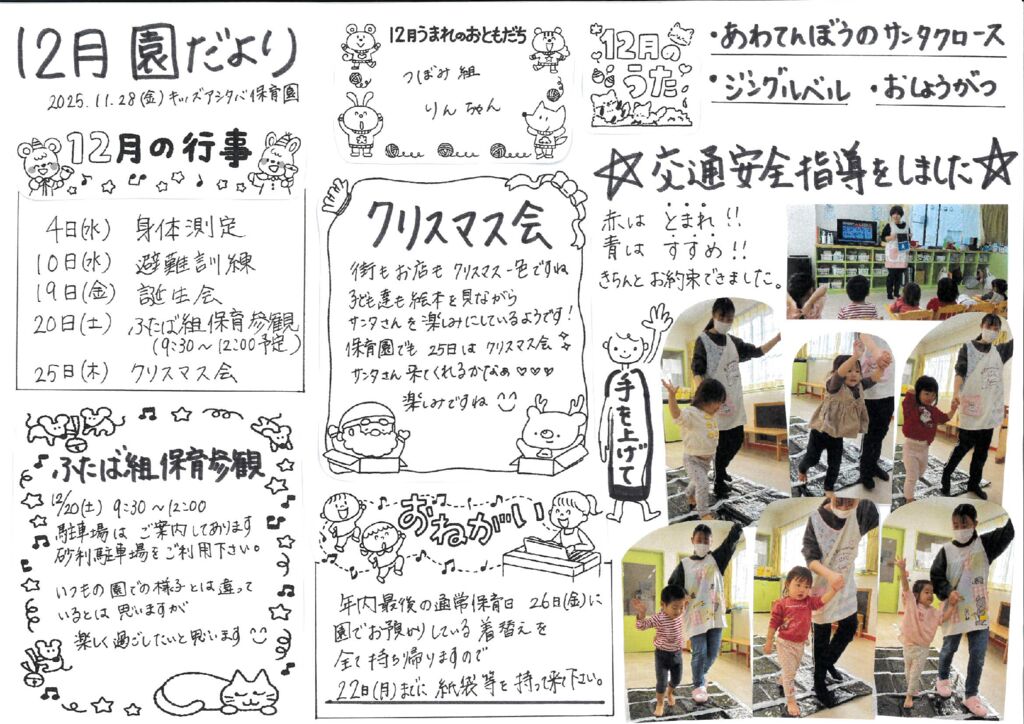 12月 園だより
2025.11.28(金) キッズアシタバ保育園
12月の行事
4日(水) 身体測定
10日(水) 避難訓練
19日(金) 誕生会
20日(土) ふたば組保育参観
(9:30～12:00予定)
25日(木) クリスマス会
ふたば組保育参観
12/20(土) 9:30～12:00
駐車場は ご案内しております
砂利駐車場をご利用下さい。
いつもの園での様子とは違って
いるとは思いますが
楽しく過ごしたいと思います
12月うまれのおともだち
つぼみ組
りんちゃん
クリスマス会
街もお店も クリスマス一色ですね
子ども達も絵本を見ながら
サンタさんを楽しみにしているようです!
保育園でも 25日は クリスマス会
サンタさん 来てくれるかなぁ♡♡♡
楽しみですね
おねがい
年内最後の通常保育日 26日(金)に
園でお預りしている着替えを
全て持ち帰りますので
22日(月)までに 紙袋等を持って来て下さい。
12月の
うた
・あわてんぼうのサンタクロース
・ジングルベル ・おしょうがつ
☆交通安全指導をしました☆
赤は とまれ!!
青は すすめ!!
きちんとお約束できました。
手を上げて